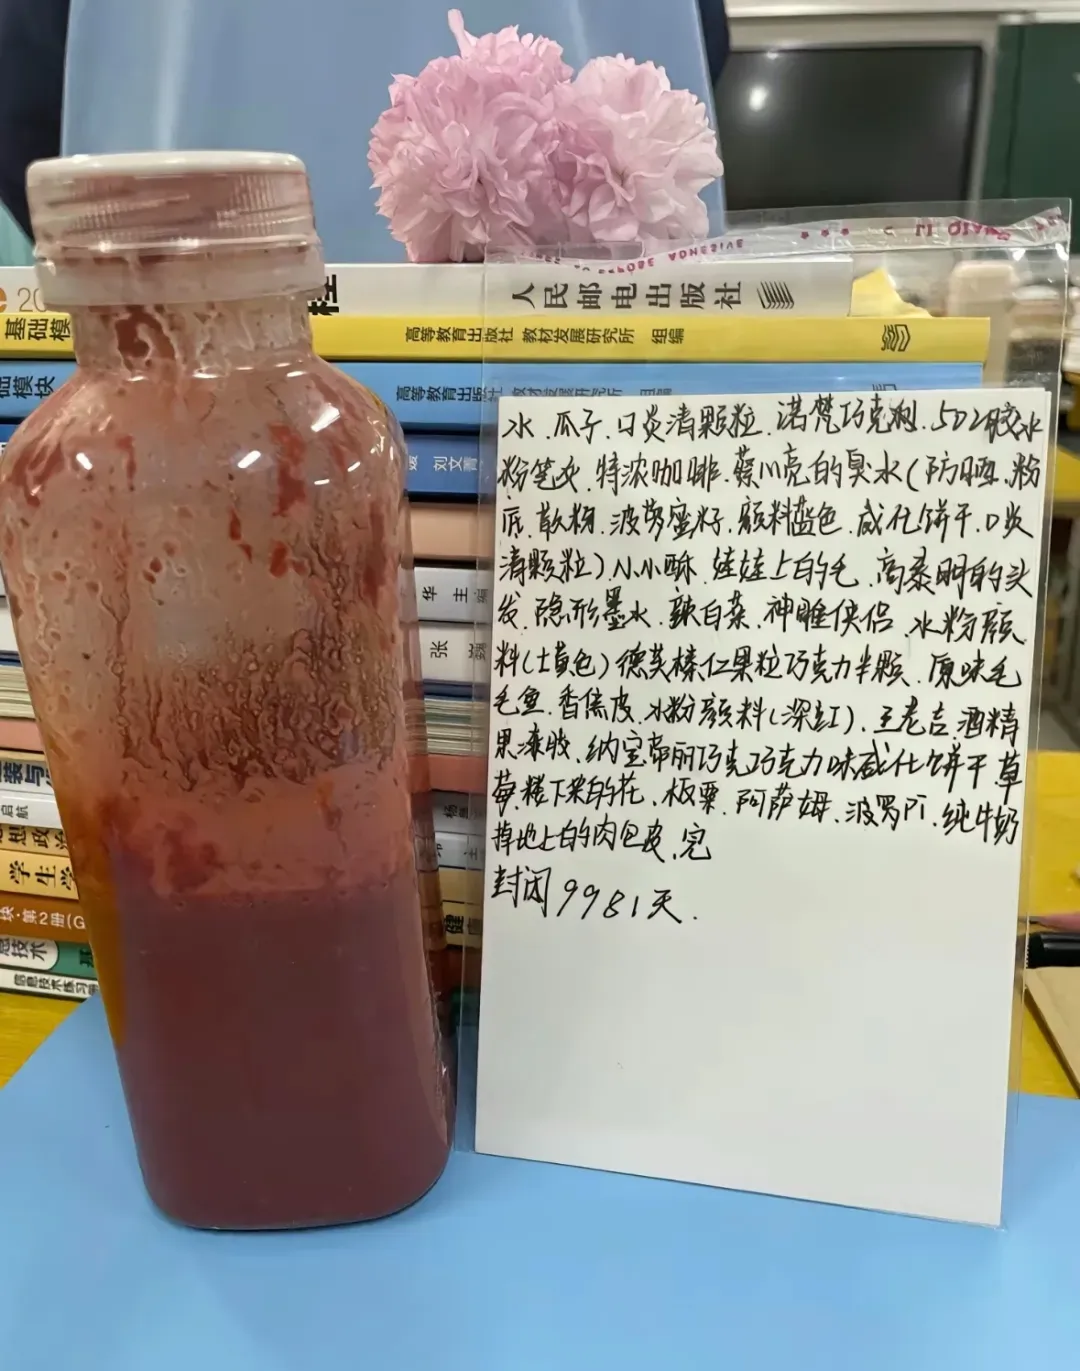 人民邮电出版社
基础模
高等教育出版社 教材发展研究所 组编
础模块
高等教育出版社 教材发展研究所 组编
刘文菁
华 主 编
张 巍
装与
启航
思想政治
学生学
块·第2册(G
息技术
信息技术练习册
健康
水、瓜子、口炎清颗粒、诺梵巧克力、502胶水
粉笔灰、特浓咖啡、蔡川亮的臭水(防晒、粉
底、散粉、波萝蜜籽、颜料蓝色、威化饼干、口炎
清颗粒)小小酥、娃娃上的毛、高泰明的头
发、隐形墨水、辣白菜、神雕侠侣、水粉颜
料(土黄色)德芙榛仁果粒巧克力半颗、原味毛
毛鱼、香蕉皮、水粉颜料(深红)、王老吉、酒精
果漆胶、纳宝帝丽巧克巧克力味威化饼干草
莓、楼下来的花、板栗、阿萨姆、波罗门、纯牛奶
掉地上的肉包皮、完
封闭9981天.